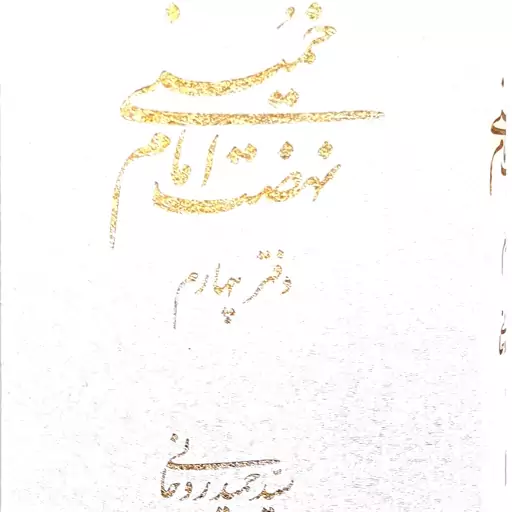 خمینی
نهضت امام
دفتر چهارم
سید حمید روحانی